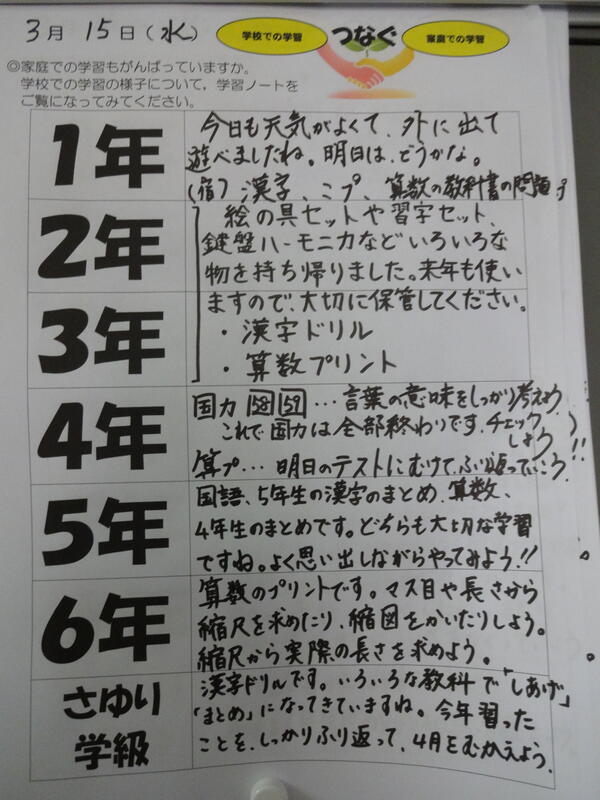 3月 15日(水)
学校での学習
つなぐ
家庭での学習
◎家庭での学習もがんばっていますか。
学校での学習の様子について、学習ノートを
ご覧になってみてください。
1年
今日も天気がよくて、外に出て
遊べましたね。明日は、どうかな。
(宿) 漢字、ミプ、算数の教科書の問題
2年
3年
絵の具セットや習字セット、
鍵盤ハーモニカなどいろいろな
物を持ち帰りました。来年も使い
ますので、大切に保管してください。
・漢字ドリル
・算数プリント
4年
国力 58 59 …言葉の意味をしっかり考えよう
これで国力は全部終わりです。チェック
しよう!!
算プ…明日のテストにむけて、ふり返っていこう。
5年
国語、5年生の漢字のまとめ、算数、
4年生のまとめです。どちらも大切な学習
ですね。よく思い出しながらやってみよう!!
6年
算数のプリントです。マス目や長さから
縮尺を求めたり、縮図をかいたりしよう。
縮尺から実際の長さを求めよう。
さゆり
学級
漢字ドリルです。いろいろな教科で「しあげ」
「まとめ」になってきていますね。今年習った
ことを、しっかりふり返って、4月をむかえよう。